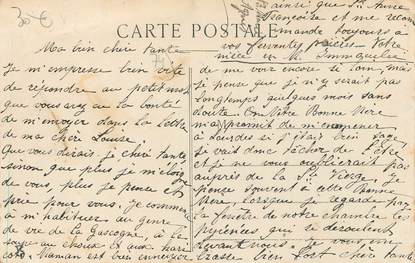 30 €
CARTE POSTALE
Ma bien chère tante
Je m'empresse bien vite
de répondre au petit mot
que vous avez eu la bonté
de m'envoyer dans la lettre
de ma chère Louise.
Que vous dirais je chère tante
sinon que plus je m'éloigne
de vous, plus je pense et
prie pour vous. Je commence
à m'habituer au genre
de vie de la Gascogne, à la
soupe au choux et aux hari
cots. Maman est bien
ainsi que Ste Anne
Françoise et me recom
mande toujours à
vos ferventes prières. Votre
nièce en
de me voir encore si loin mais
je pense que je n'y serai pas
longtemps quelques mois sans
doute. Notre Bonne Mère
m'a promit de m'emmener
à Lourdes si j'étais bien sage
je vait donc tâcher de l'être
et je ne vous oublierait pas
auprès de la Ste Vierge. Je
pense souvent à cette Bonne
Mère, lorsque je regarde par
la fenêtre de notre chambre les
pyrénées qui se déroulent
devant nous. Je vous em
brasse bien fort chère tante